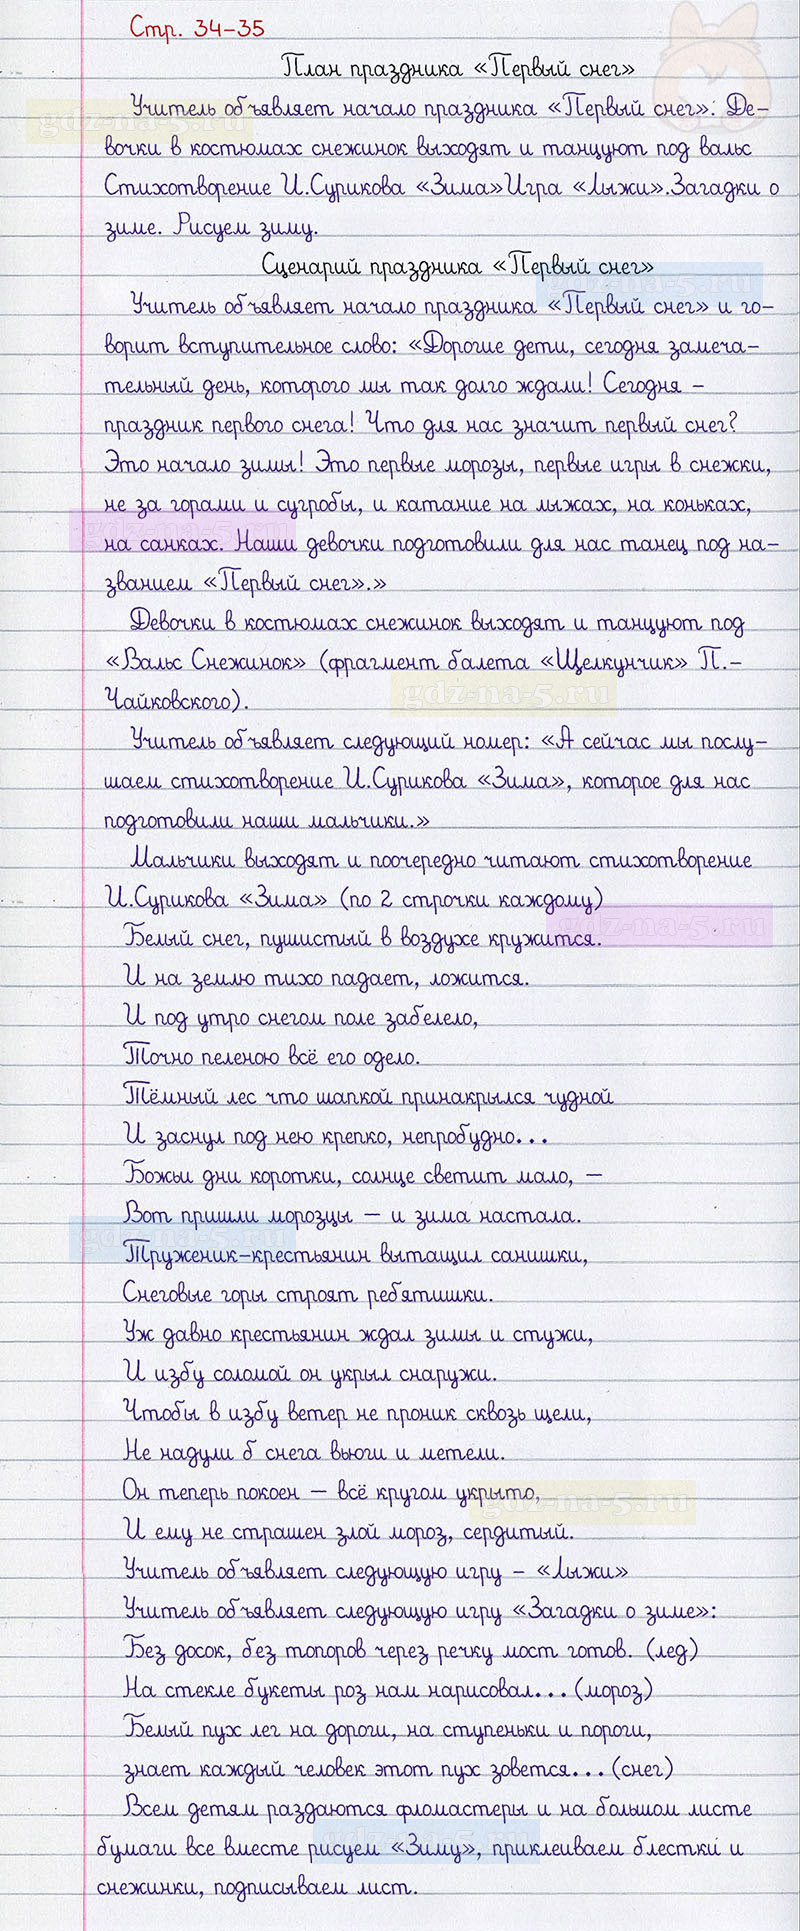 Стр. 34-35
План праздника «Первый снег»
Учитель объявляет начало праздника «Первый снег»: Де-
вочки в костюмах снежинок выходят и танцуют под вальс
Стихотворение И.Сурикова «Зима»Игра «Лыжи».Загадки о
зиме. Рисуем зиму.
Сценарий праздника «Первый снег»
Учитель объявляет начало праздника «Первый снег» и го-
ворит вступительное слово: «Дорогие дети, сегодня замеча-
тельный день, которого мы так долго ждали! Сегодня -
праздник первого снега! Что для нас значит первый снег?
Это начало зимы! Это первые морозы, первые игры в снежки,
не за горами и сугробы, и катание на лыжах, на коньках,
на санках. Наши девочки подготовили для нас танец под на-
званием «Первый снег».»
Девочки в костюмах снежинок выходят и танцуют под
«Вальс Снежинок» (фрагмент балета «Щелкунчик» П.-
Чайковского).
Учитель объявляет следующий номер: «А сейчас мы послу-
шаем стихотворение И.Сурикова «Зима», которое для нас
подготовили наши мальчики.»
Мальчики выходят и поочередно читают стихотворение
И.Сурикова «Зима» (по 2 строчки каждому)
Белый снег, пушистый в воздухе кружится.
И на землю тихо падает, ложится.
И под утро снегом поле забелело,
Точно пеленою всё его одело.
Тёмный лес что шапкой принакрылся чудной
И заснул под нею крепко, непробудно...
Божьи дни коротки, солнце светит мало, —
Вот пришли морозцы — и зима настала.
Труженик-крестьянин вытащил санишки,
Снеговые горы строят ребятишки.
Уж давно крестьянин ждал зимы и стужи,
И избу соломой он укрыл снаружи.
Чтобы в избу ветер не проник сквозь щели,
Не надули б снега вьюги и метели.
Он теперь покоен — всё кругом укрыто,
И ему не страшен злой мороз, сердитый.
Учитель объявляет следующую игру - «Лыжи»
Учитель объявляет следующую игру «Загадки о зиме»:
Без досок, без топоров через речку мост готов. (лед)
На стекле букеты роз нам нарисовал...(мороз)
Белый пух лег на дороги, на ступеньки и пороги,
знает каждый человек этот пух зовется...(снег)
Всем детям раздаются фломастеры и на большом листе
бумаги все вместе рисуем «Зиму», приклеиваем блестки и
снежинки, подписываем лист.
gdz-na-5.ru
gdz-na-5.ru
gdz-na-5.ru
gdz-na-5.ru
gdz-na-5.ru
gdz-na-5.ru
gdz-na-5.ru
gdz-na-5.ru